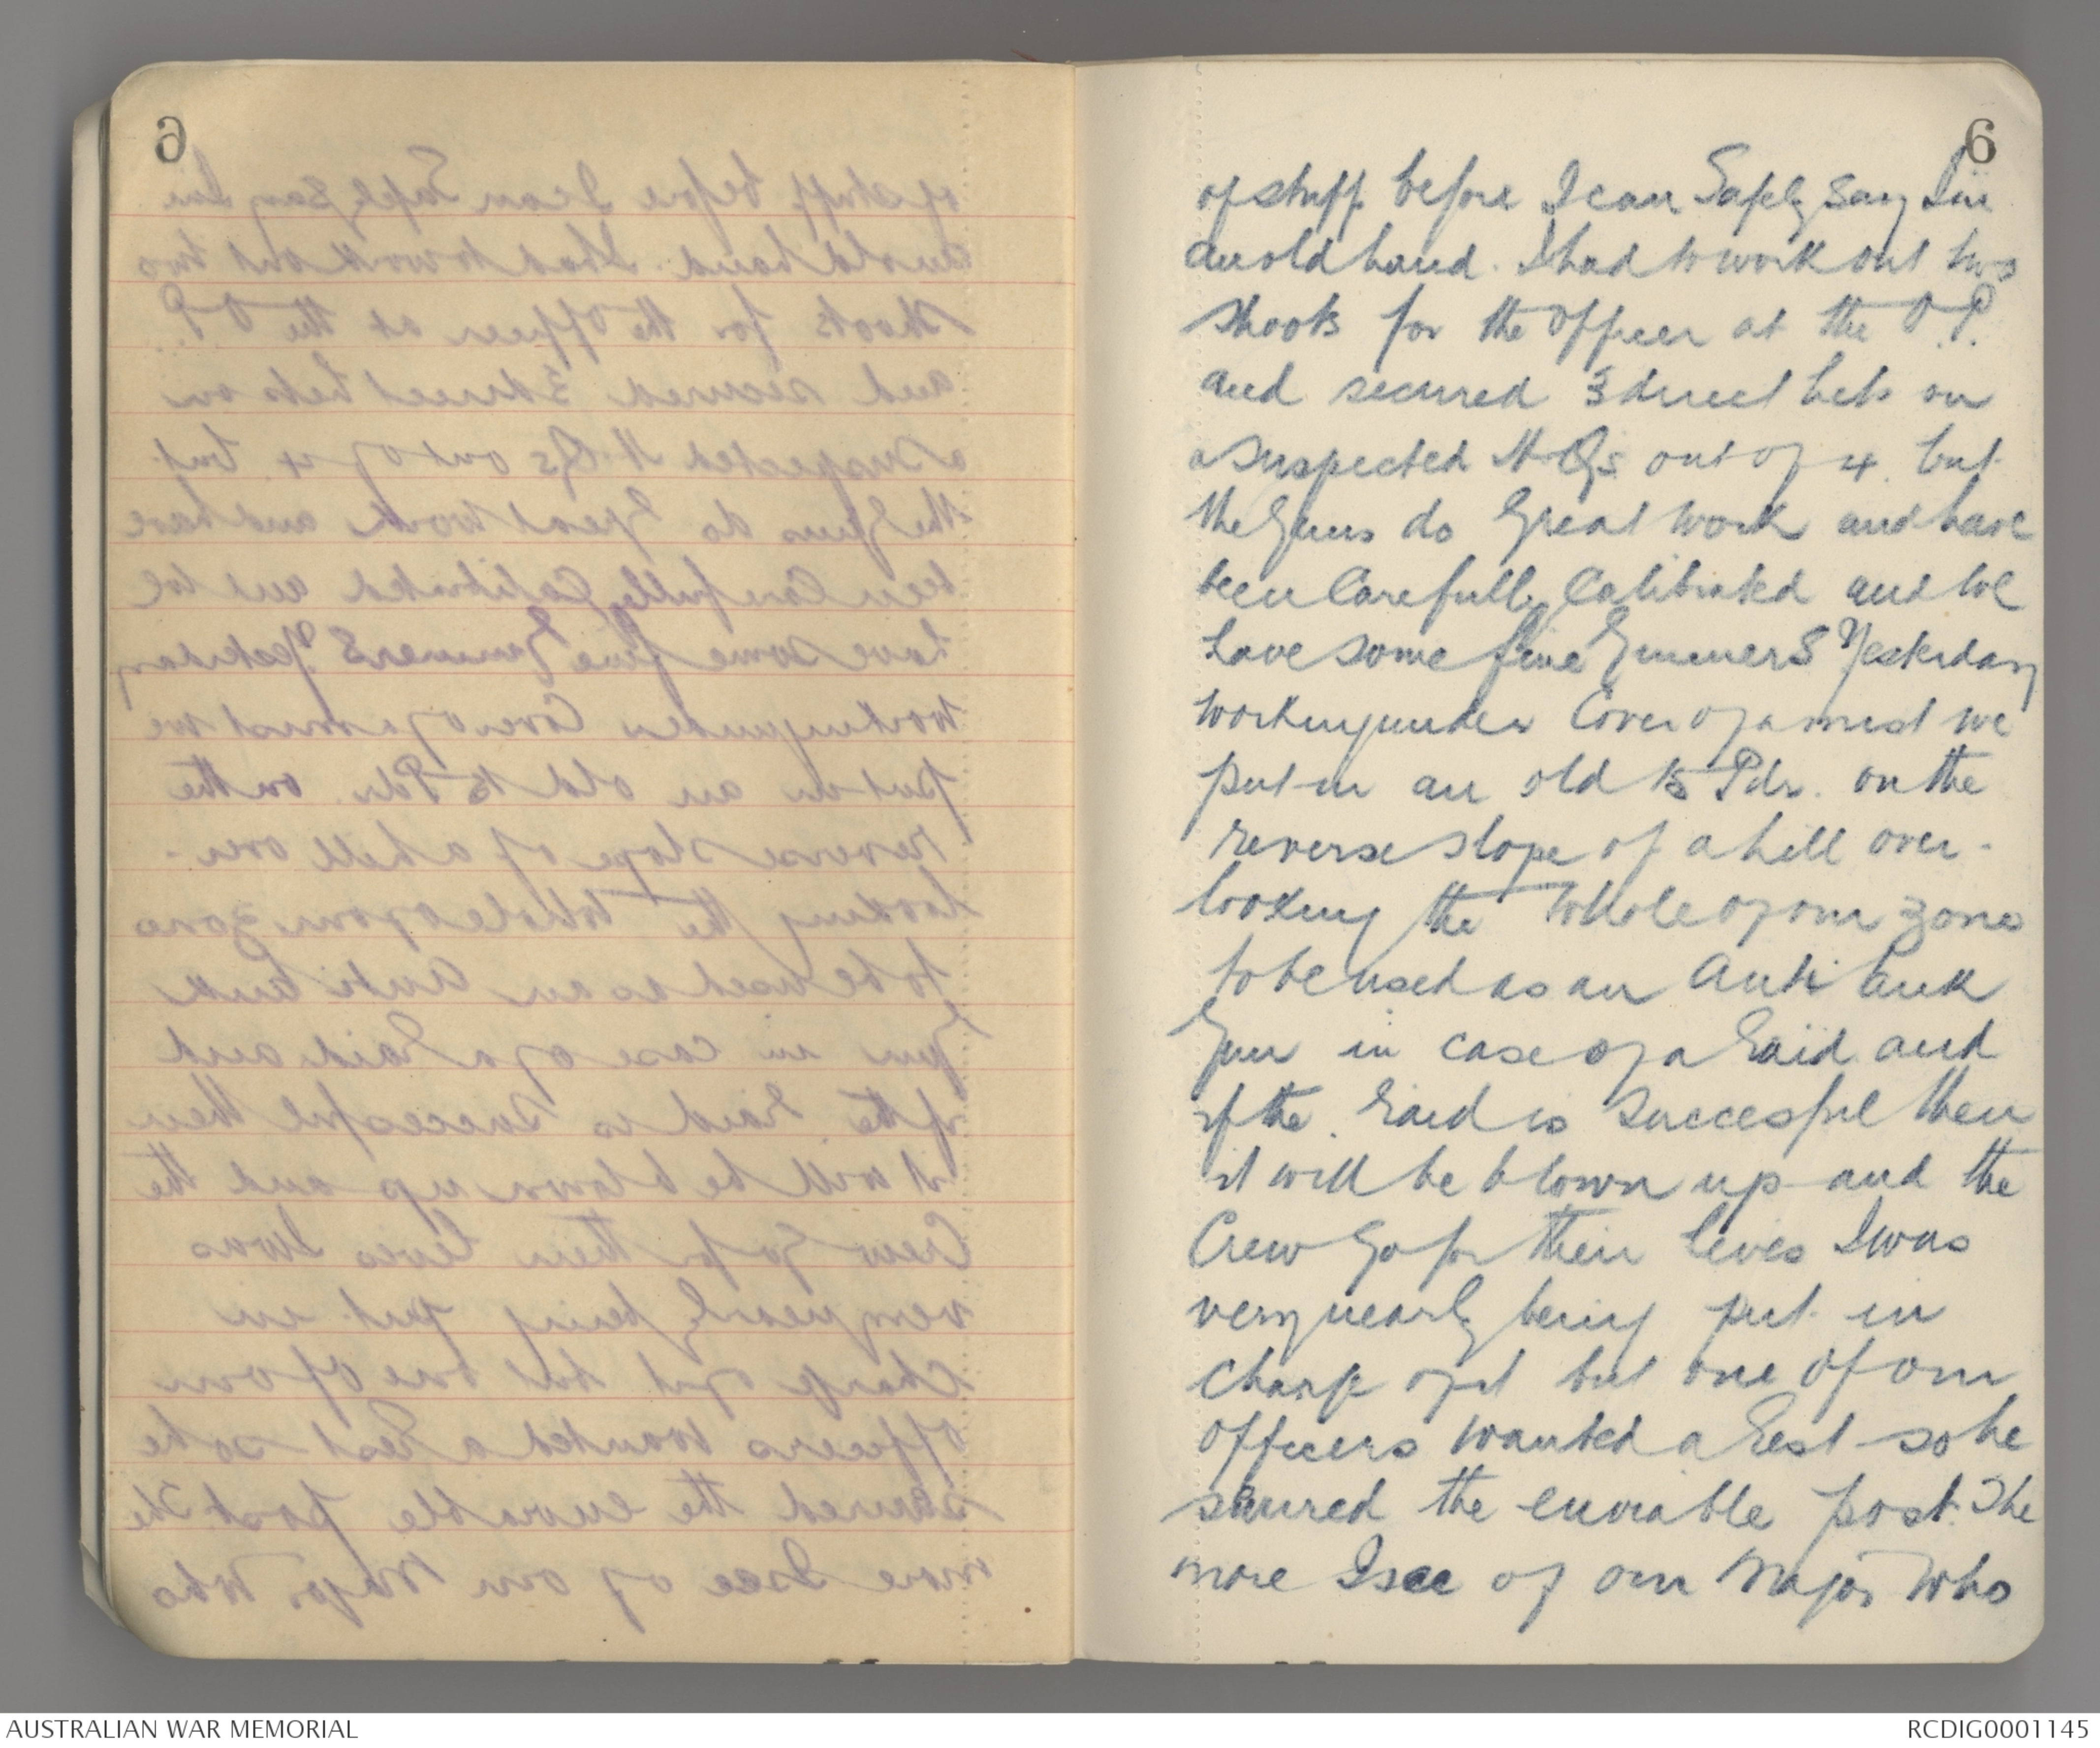 6
of stuff before I can Safely Say I'm
an old hand. I had to work out two
shoots for the Officer at the O.P.
and secured 3 direct hits on
a suspected H.Qs out of 4. but
the Guns do Great Work and have
been Carefully Calibrated and We
have some fine GunnerS Yesterday
Working under Cover of a mist we
put in an old 15 Pdr. on the
reverse slope of a hill over-
looking the Whole of our zone
to be used as an Anti Tank
Gun in case of a Raid and
if the Raid is Succesful then
it will be blown up and the
Crew Go for their lives I was
very nearly being put in
charge of it but one of our
Officers Wanted a Rest so he
secured the enviable post. The
more I see of our Major Who
AUSTRALIAN WAR MEMORIAL
RCDIG0001145